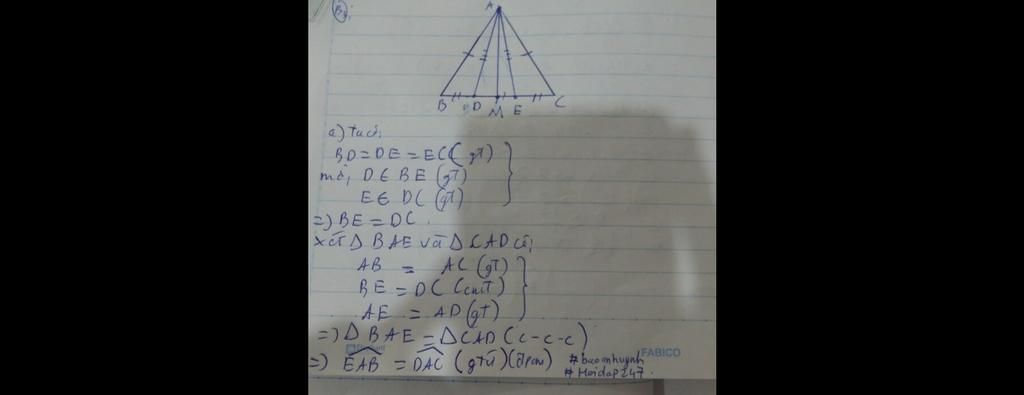 A
B D M E C
a) Ta có:
BD = DE = EC (gT)
mà, D ∈ BE (gT)
E ∈ DC (gT)
=) BE = DC
xét Δ BAE và Δ CAD có:
AB = AC (gT)
BE = DC (cmT)
AE = AD (gT)
=) Δ BAE = Δ CAD (c-c-c)
=) EAB = DAC (gtứ) (đpcm) #baoanhuynh
#Hoidap247.
FABICO